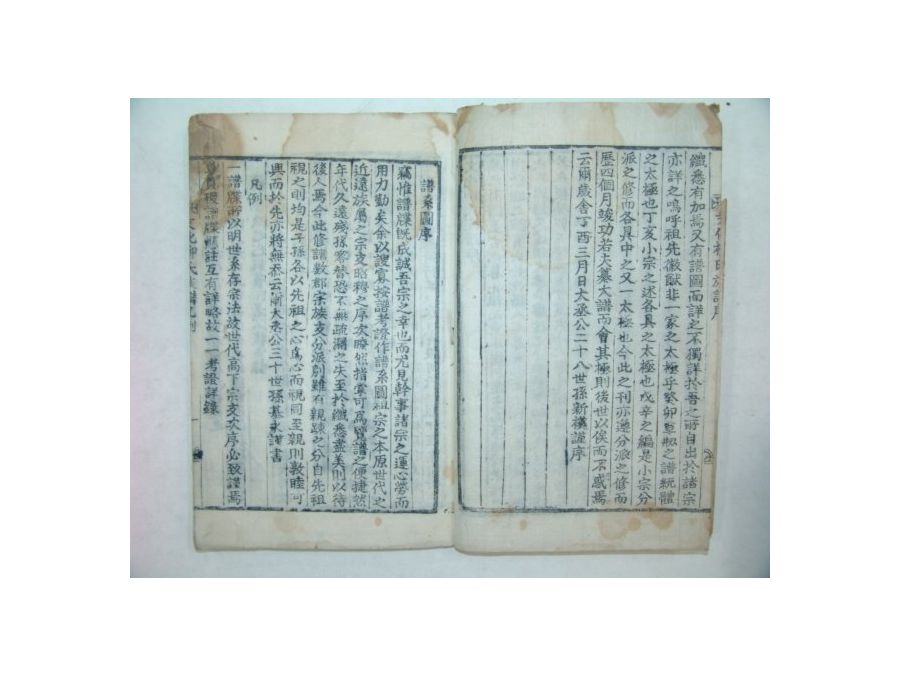 纖悉有加焉又有譜圖而詳之不獨詳於吾之所自出於諸宗
亦詳之嗚呼祖先徽猷非一家之太極乎癸卯草刱之譜統體
之太極也丁亥小宗之述各具之太極也戊辛之編是小宗分
派之修而各具中之又一太極也今此之刊亦遵分派之修而
歷四個月竣功若夫纂大譜而會其極則後世以俟而不惑焉
云爾歲舍丁酉三月日大丞公二十八世孫新謹序
譜系圖序
竊惟譜牒旣成誠吾宗之幸也而尤見幹事諸宗之運心勞而
用力勤矣余以謏寡按譜考證作譜系圖祖宗之本原世代之
近遠族屬之宗支昭穆之序次瞭然指掌可爲覽譜之便捷然
年代久遠殘孫零替恐不無疏漏之失至於纖悉盡美則以待
後人焉今此修譜數郡宗族支分派別雖有親疎之分自先祖
視之則均是子孫各以先祖之心爲心而視同至親則敦睦可
興而於先亦將無忝云爾大丞公三十世孫基永謹書
凡例
一譜牒所以明世系存宗法故世代高下宗支次序必致謹焉
譜牒懸註互有詳略故一一考證詳錄